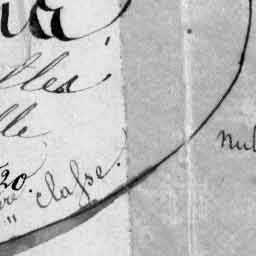 na
lles
lle
20.
" classe.
nul